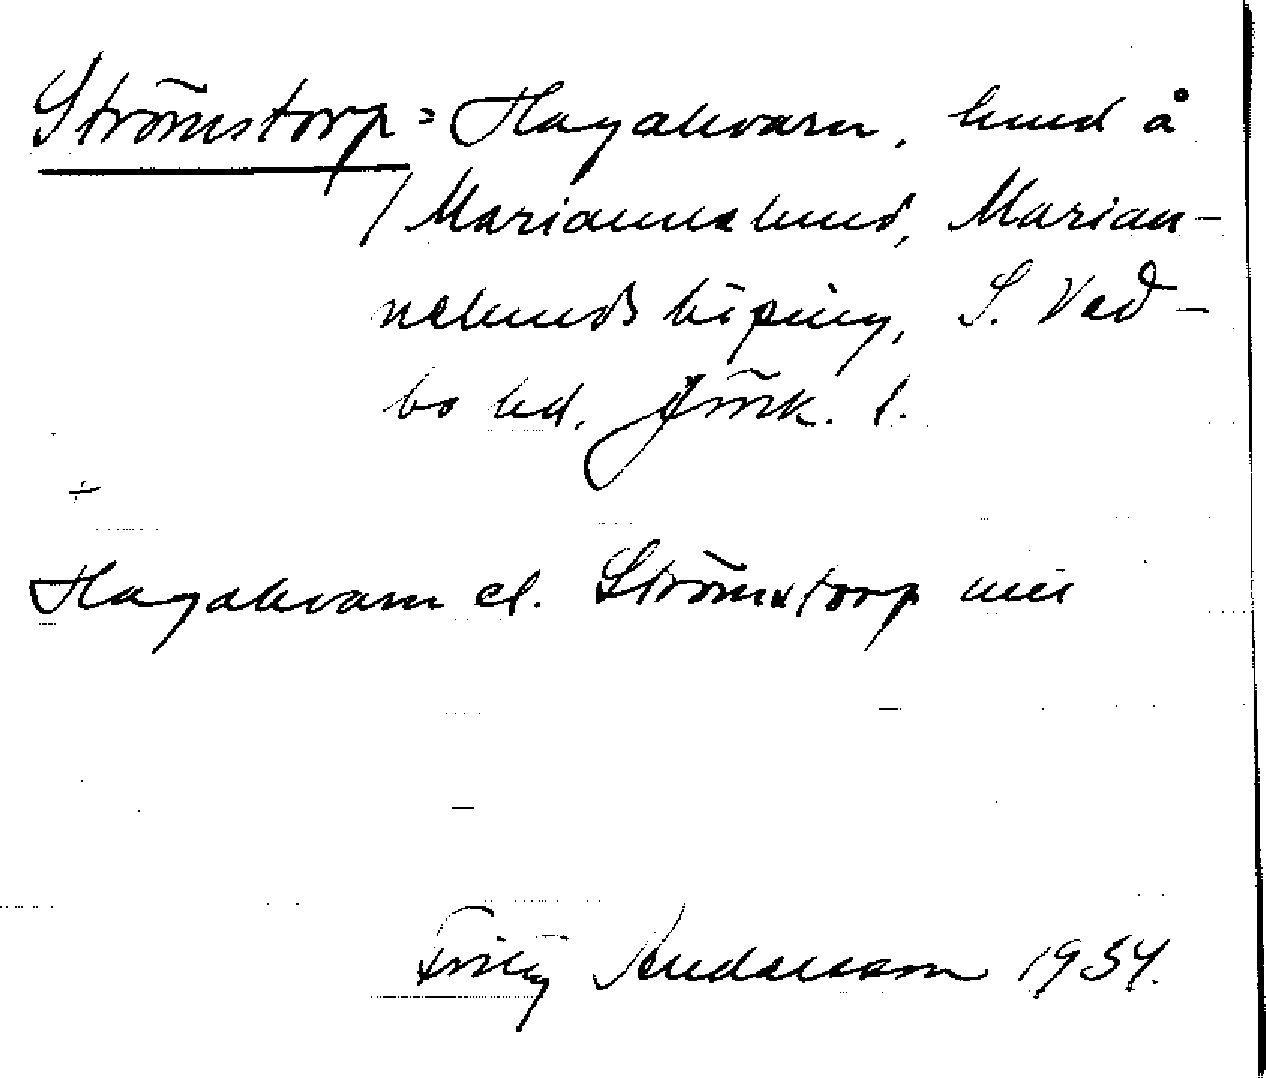 Strömstorp = Hagakvarn, hmd å
/ Mariannelund, Marian-
nelunds köping, S. Ved-
bo hd. Jönk. l.
÷
Hagakvarn el. Strömstorp
Andersson 1934.